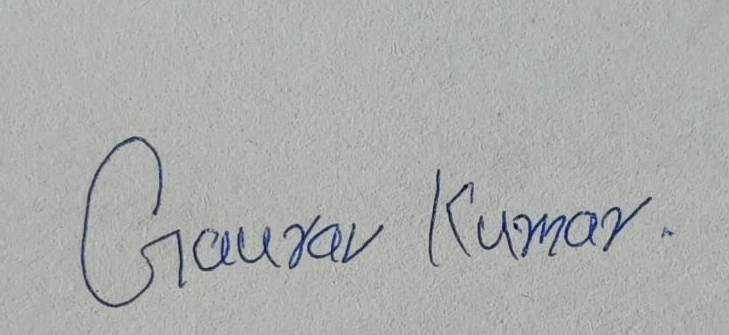 Gaurav Kumar.